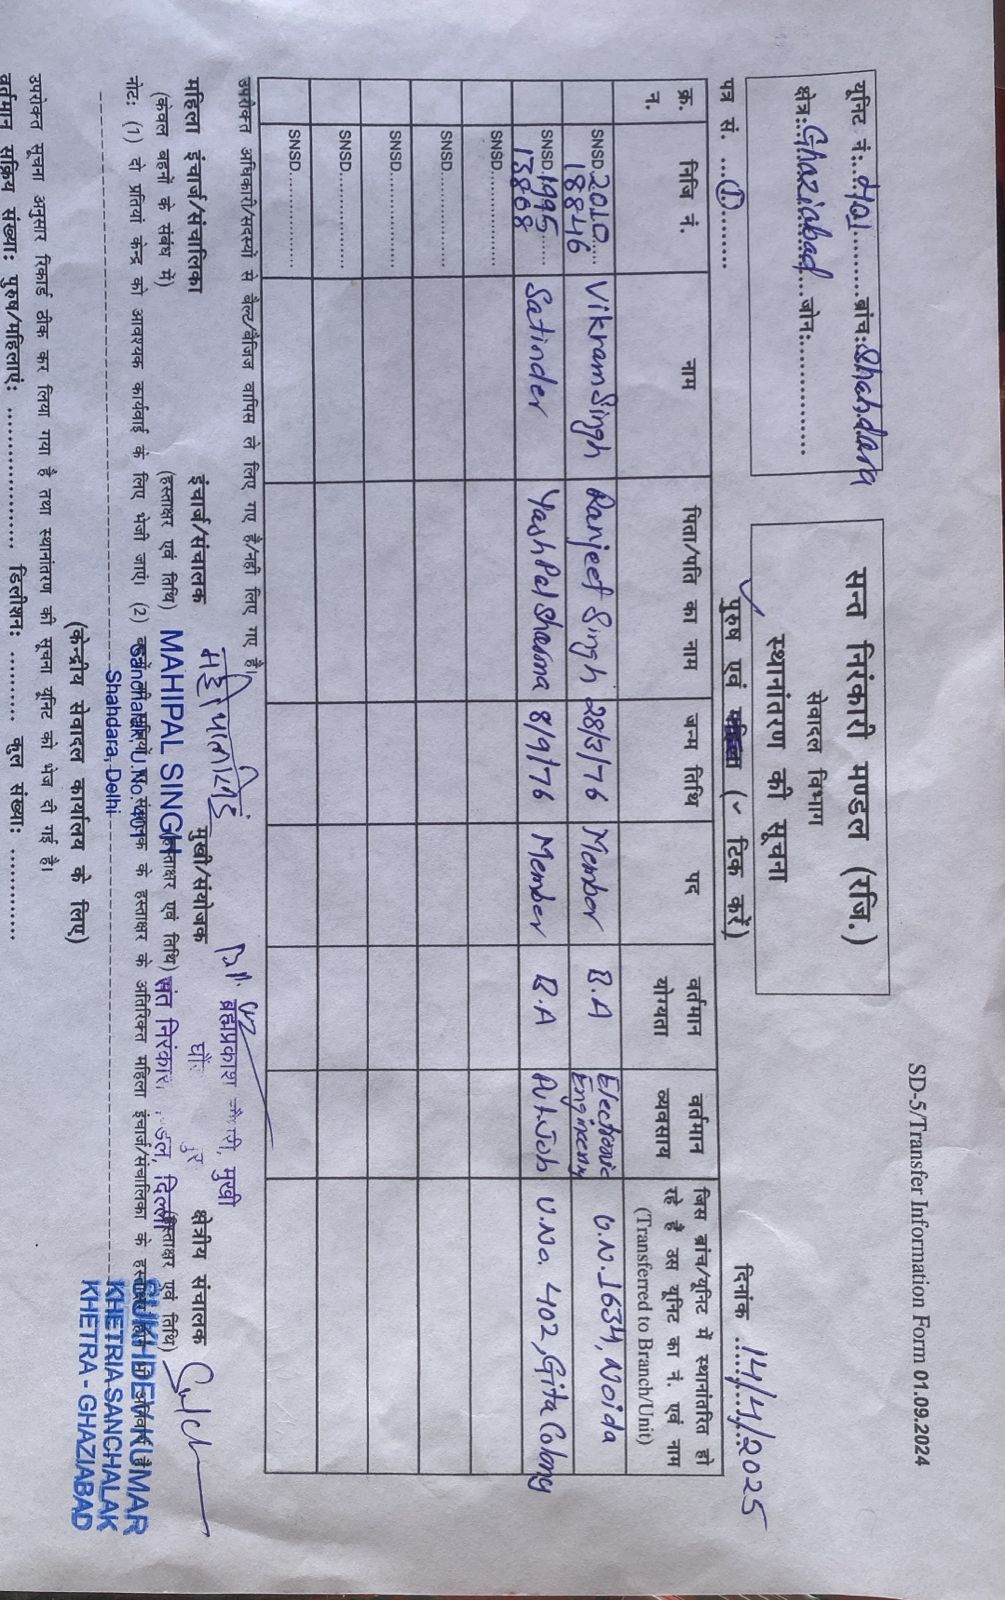 SD-5/Transfer Information Form 01.09.2024
यूनिट नं:...401........ब्रांच:Shahdara
क्षेत्र:.Ghaziabad...जोन:................
सन्त निरंकारी मण्डल (रजि.)
सेवादल विभाग
स्थानांतरण की सूचना
पत्र सं. ...①.........
पुरुष एवं महिला (✓ टिक करें)
दिनांक ..14/4/2025
क्र. न. निजि नं. नाम पिता/पति का नाम जन्म तिथि पद वर्तमान योग्यता वर्तमान व्यवसाय जिस ब्रांच/यूनिट में स्थानांतरित हो रहे हैं उस यूनिट का नं. एवं नाम (Transferred to Branch/Unit)
SNSD.2010.... 18846 Vikram Singh Ranjeet Singh 28/3/76 Member B.A Electronic Engineering U.N. 1634, Noida
SNSD.1995..... 13868 Satinder Yash Pal Sharma 8/9/76 Member B.A Pvt Job U.No. 402, Gita Colony
SNSD................
SNSD................
SNSD................
SNSD................
SNSD................
उपरोक्त अधिकारी/सदस्यों से बैल्ट/बैजिज वापिस ले लिए गए है/नहीं लिए गए है।
महिला इंचार्ज/संचालिका
(केवल बहनों के संबंध में)
इंचार्ज/संचालक
(हस्ताक्षर एवं तिथि)
महीपाल सिंह
MAHIPAL SINGH
Sanchalak U.No. 401
Shahdara, Delhi
मुखी/संयोजक
(हस्ताक्षर एवं तिथि)
ब्रह्मप्रकाश चौधरी, मुखी
संत निरंकारी मंडल, दिल्ली
क्षेत्रीय संचालक
(हस्ताक्षर एवं तिथि)
SUKHDEV KUMAR
KHETRIA SANCHALAK
KHETRA - GHAZIABAD
नोट: (1) दो प्रतियां केन्द्र को आवश्यक कार्यवाई के लिए भेजी जाएं। (2) बहनों की प्रतियों पर संचालक के हस्ताक्षर के अतिरिक्त महिला इंचार्ज/संचालिका के हस्ताक्षर होने भी अनिवार्य है
(केन्द्रीय सेवादल कार्यालय के लिए)
उपरोक्त सूचना अनुसार रिकार्ड ठीक कर लिया गया है तथा स्थानांतरण की सूचना यूनिट को भेज दी गई है।
वर्तमान सक्रिय संख्या: पुरुष/महिलाएं: .................... डिलीशन: .......... कुल संख्या: ..............